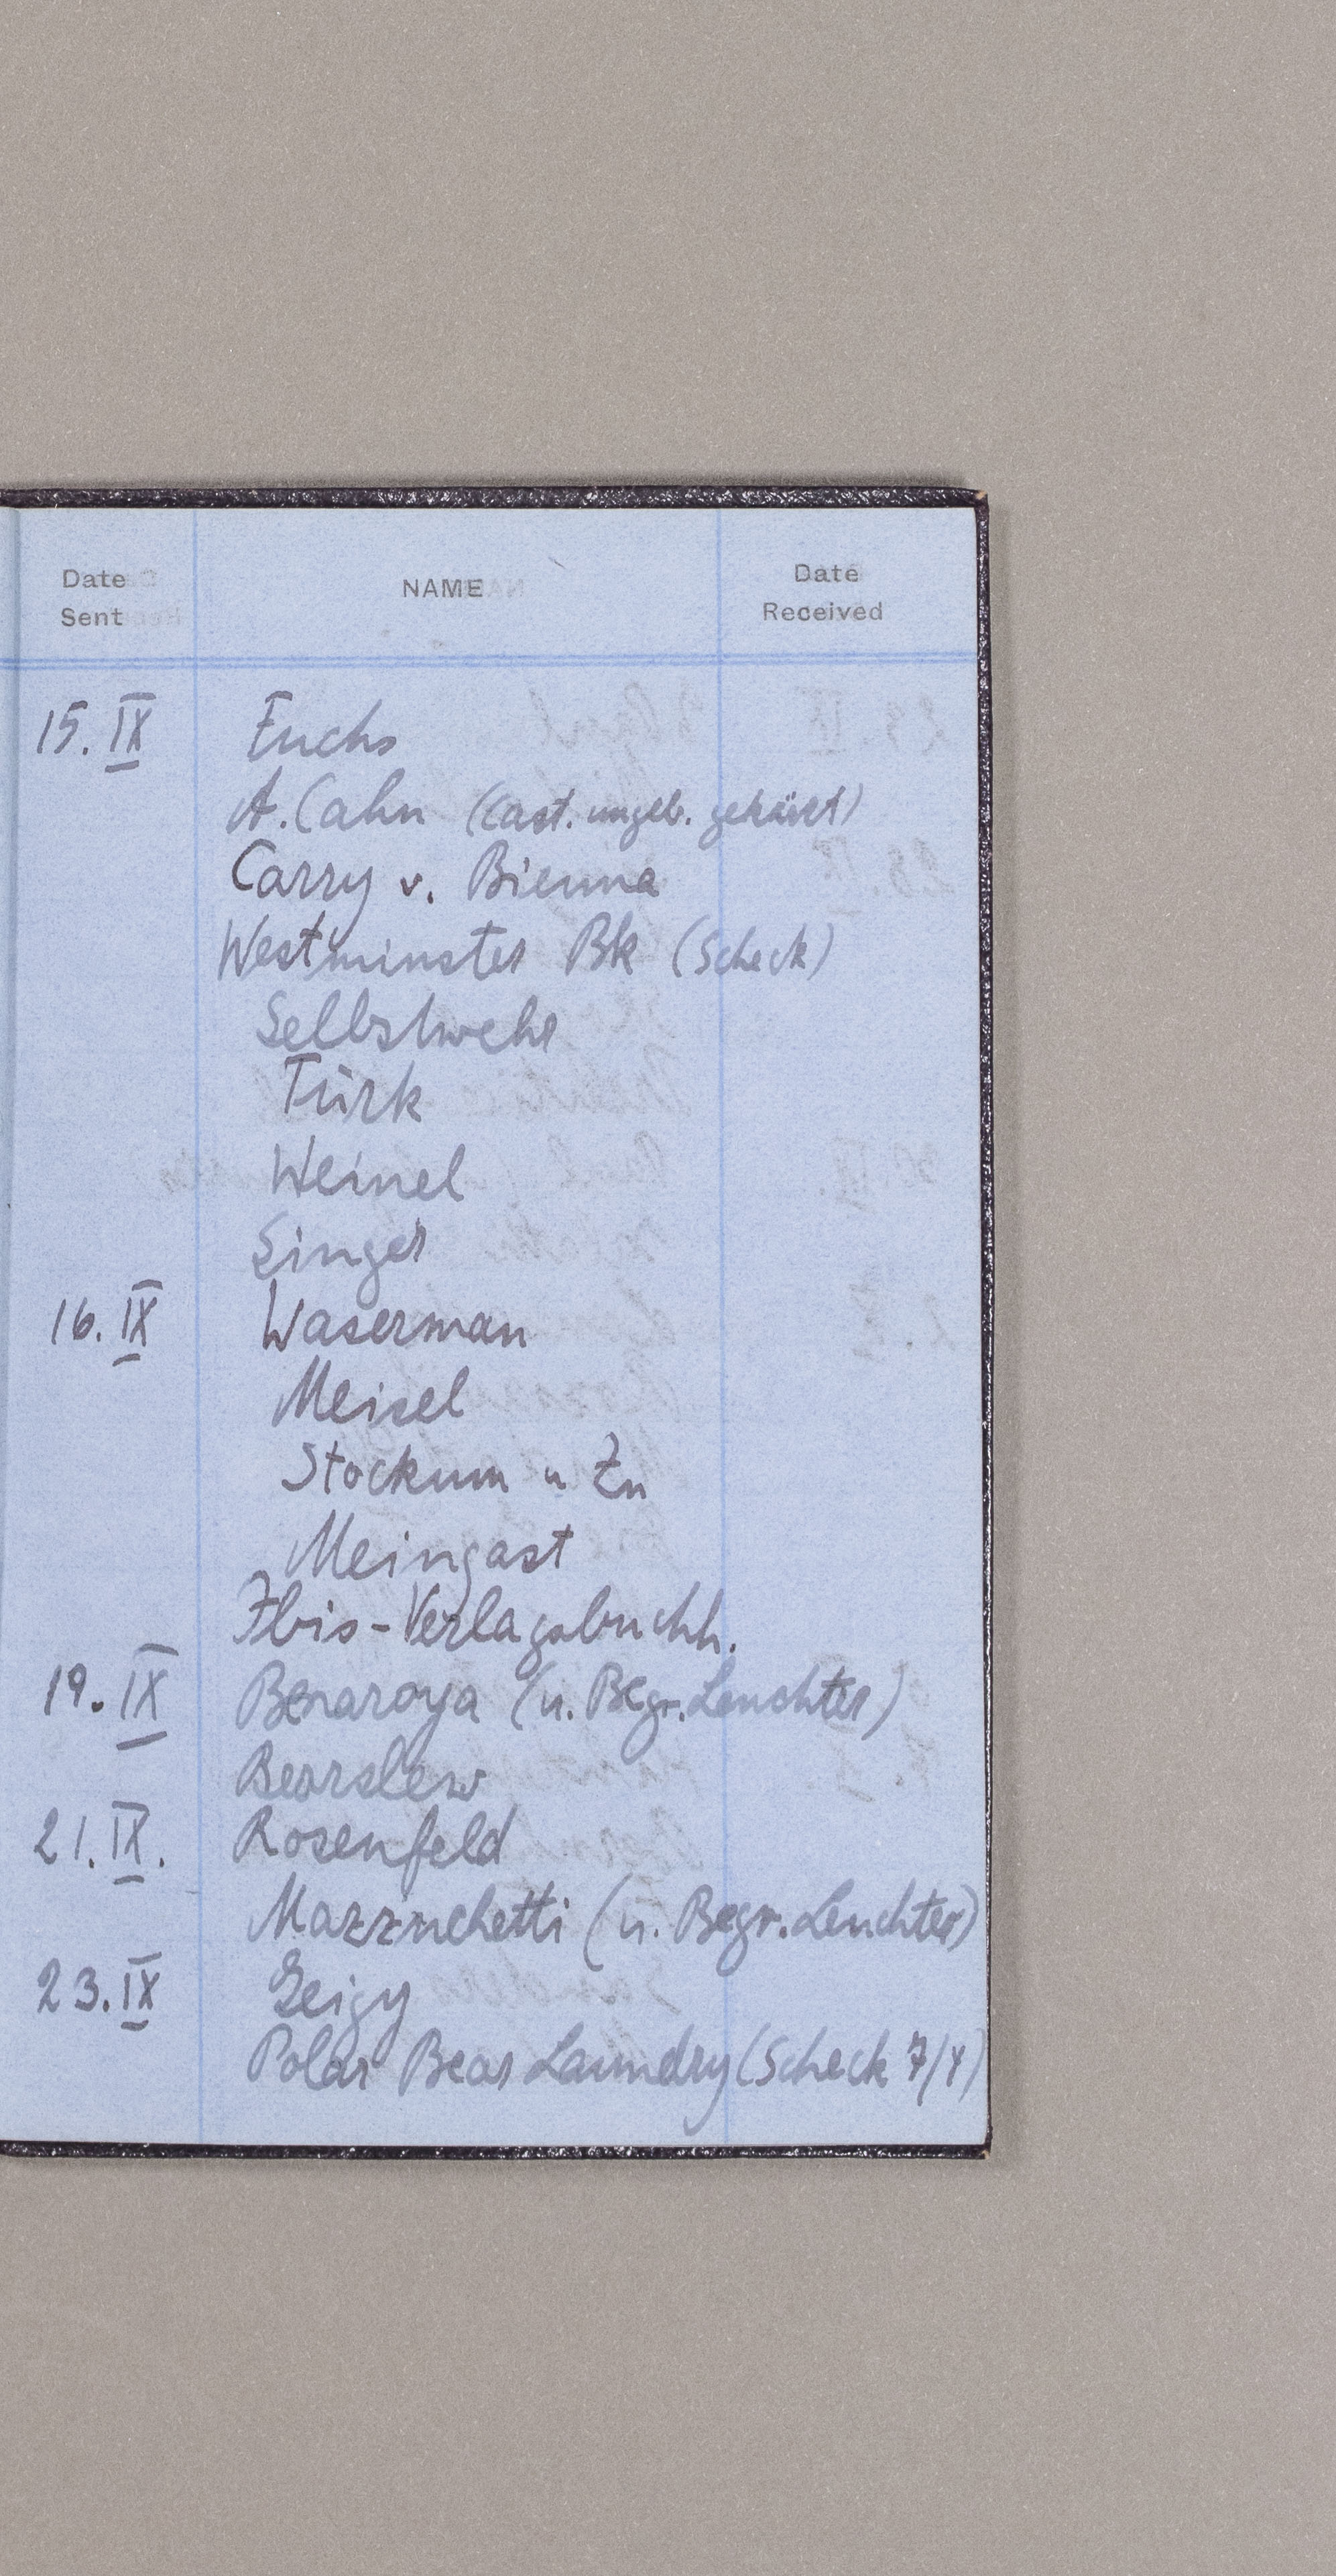 Date Sent NAME Date Received
15. IX Fuchs
A. Cahn (Cast. ungeb. gekürzt)
Carry v. Bienna
Westminster Bk (Scheck)
Selbstwehr
Türk
Weinel
Singer
16. IX Waserman
Meisel
Stockum u Zn
Meingast
Ibis-Verlagsbuchh.
19. IX Benaroya (u. Begr. Leuchter)
21. IX. Rosenfeld
Mazzuchetti (u. Begr. Leuchter)
23. IX Geigy
Polar Bear Laundry (Scheck 7/Y)